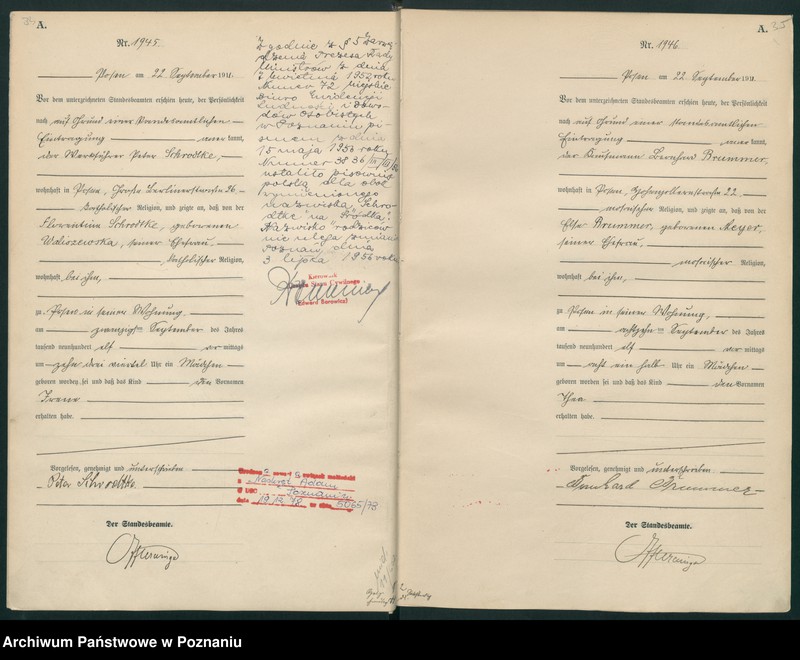 A.
Nr. 1945
Posen am 22 September 1911
Vor dem unterzeichneten Standesbeamten erschien heute, der Persönlichkeit
nach auf Grund einer standesamtlichen
Eintragung kannt,
der Werkführer Peter Schrodtke,
wohnhaft in Posen, Große Berlinerstraße 26
katholischer Religion, und zeigte an, daß von der
Florentine Schrodtke, geborenen
Waliszewska, seiner Ehefrau,
katholischer Religion,
wohnhaft bei ihm,
zu Posen in seiner Wohnung
am zwanzigsten September des Jahres
tausend neunhundert elf mittags
um zehn drei viertel Uhr ein Mädchen
geboren worden sei und daß das Kind den Vornamen
Irene
erhalten habe.
Vorgelesen, genehmigt und unterschrieben
Peter Schrodtke.
Der Standesbeamte.
Zgodnie z § 5 Zarzą-
dzenia Prezesa Rady
Ministrów z dnia
kwietnia 1952 roku
Numer 72 Miejskie
Biuro Ewidencji
Ludności i Dowo-
dów Osobistych
w Poznaniu pi-
smem z dnia
15 maja 1956 roku
Numer 38 36
ustaliło pisownię
polską dla obok
wymienionego
nazwiska "Schro-
dtke" na "Srődka".
Nazwisko rodziców
nie ulega zmianie
Poznań, dnia
3 lipca 1956 roku.
Kierownik
Urzędu Stanu Cywilnego
(Edward Borowicz)
związek małżeński
z Adam
w USC Poznaniu
dnia nr aktu 5065/78
A. 35
Nr. 1946
Posen am 22 September 1911
Vor dem unterzeichneten Standesbeamten erschien heute, der Persönlichkeit
nach auf Grund einer standesamtlichen
Eintragung kannt,
der Kaufmann Bernhard Brummer,
wohnhaft in Posen, Hohenzollernstraße 22
mosaischer Religion, und zeigte an, daß von der
Else Brummer, geborenen Meyer,
seiner Ehefrau,
mosaischer Religion,
wohnhaft bei ihm,
zu Posen in seiner Wohnung,
am achtzehnten September des Jahres
tausend neunhundert elf mittags
um acht ein halb Uhr ein Mädchen
geboren worden sei und daß das Kind den Vornamen
Thea
erhalten habe.
Vorgelesen, genehmigt und unterschrieben
Bernhard Brummer
Der Standesbeamte.
Archiwum Państwowe w Poznaniu